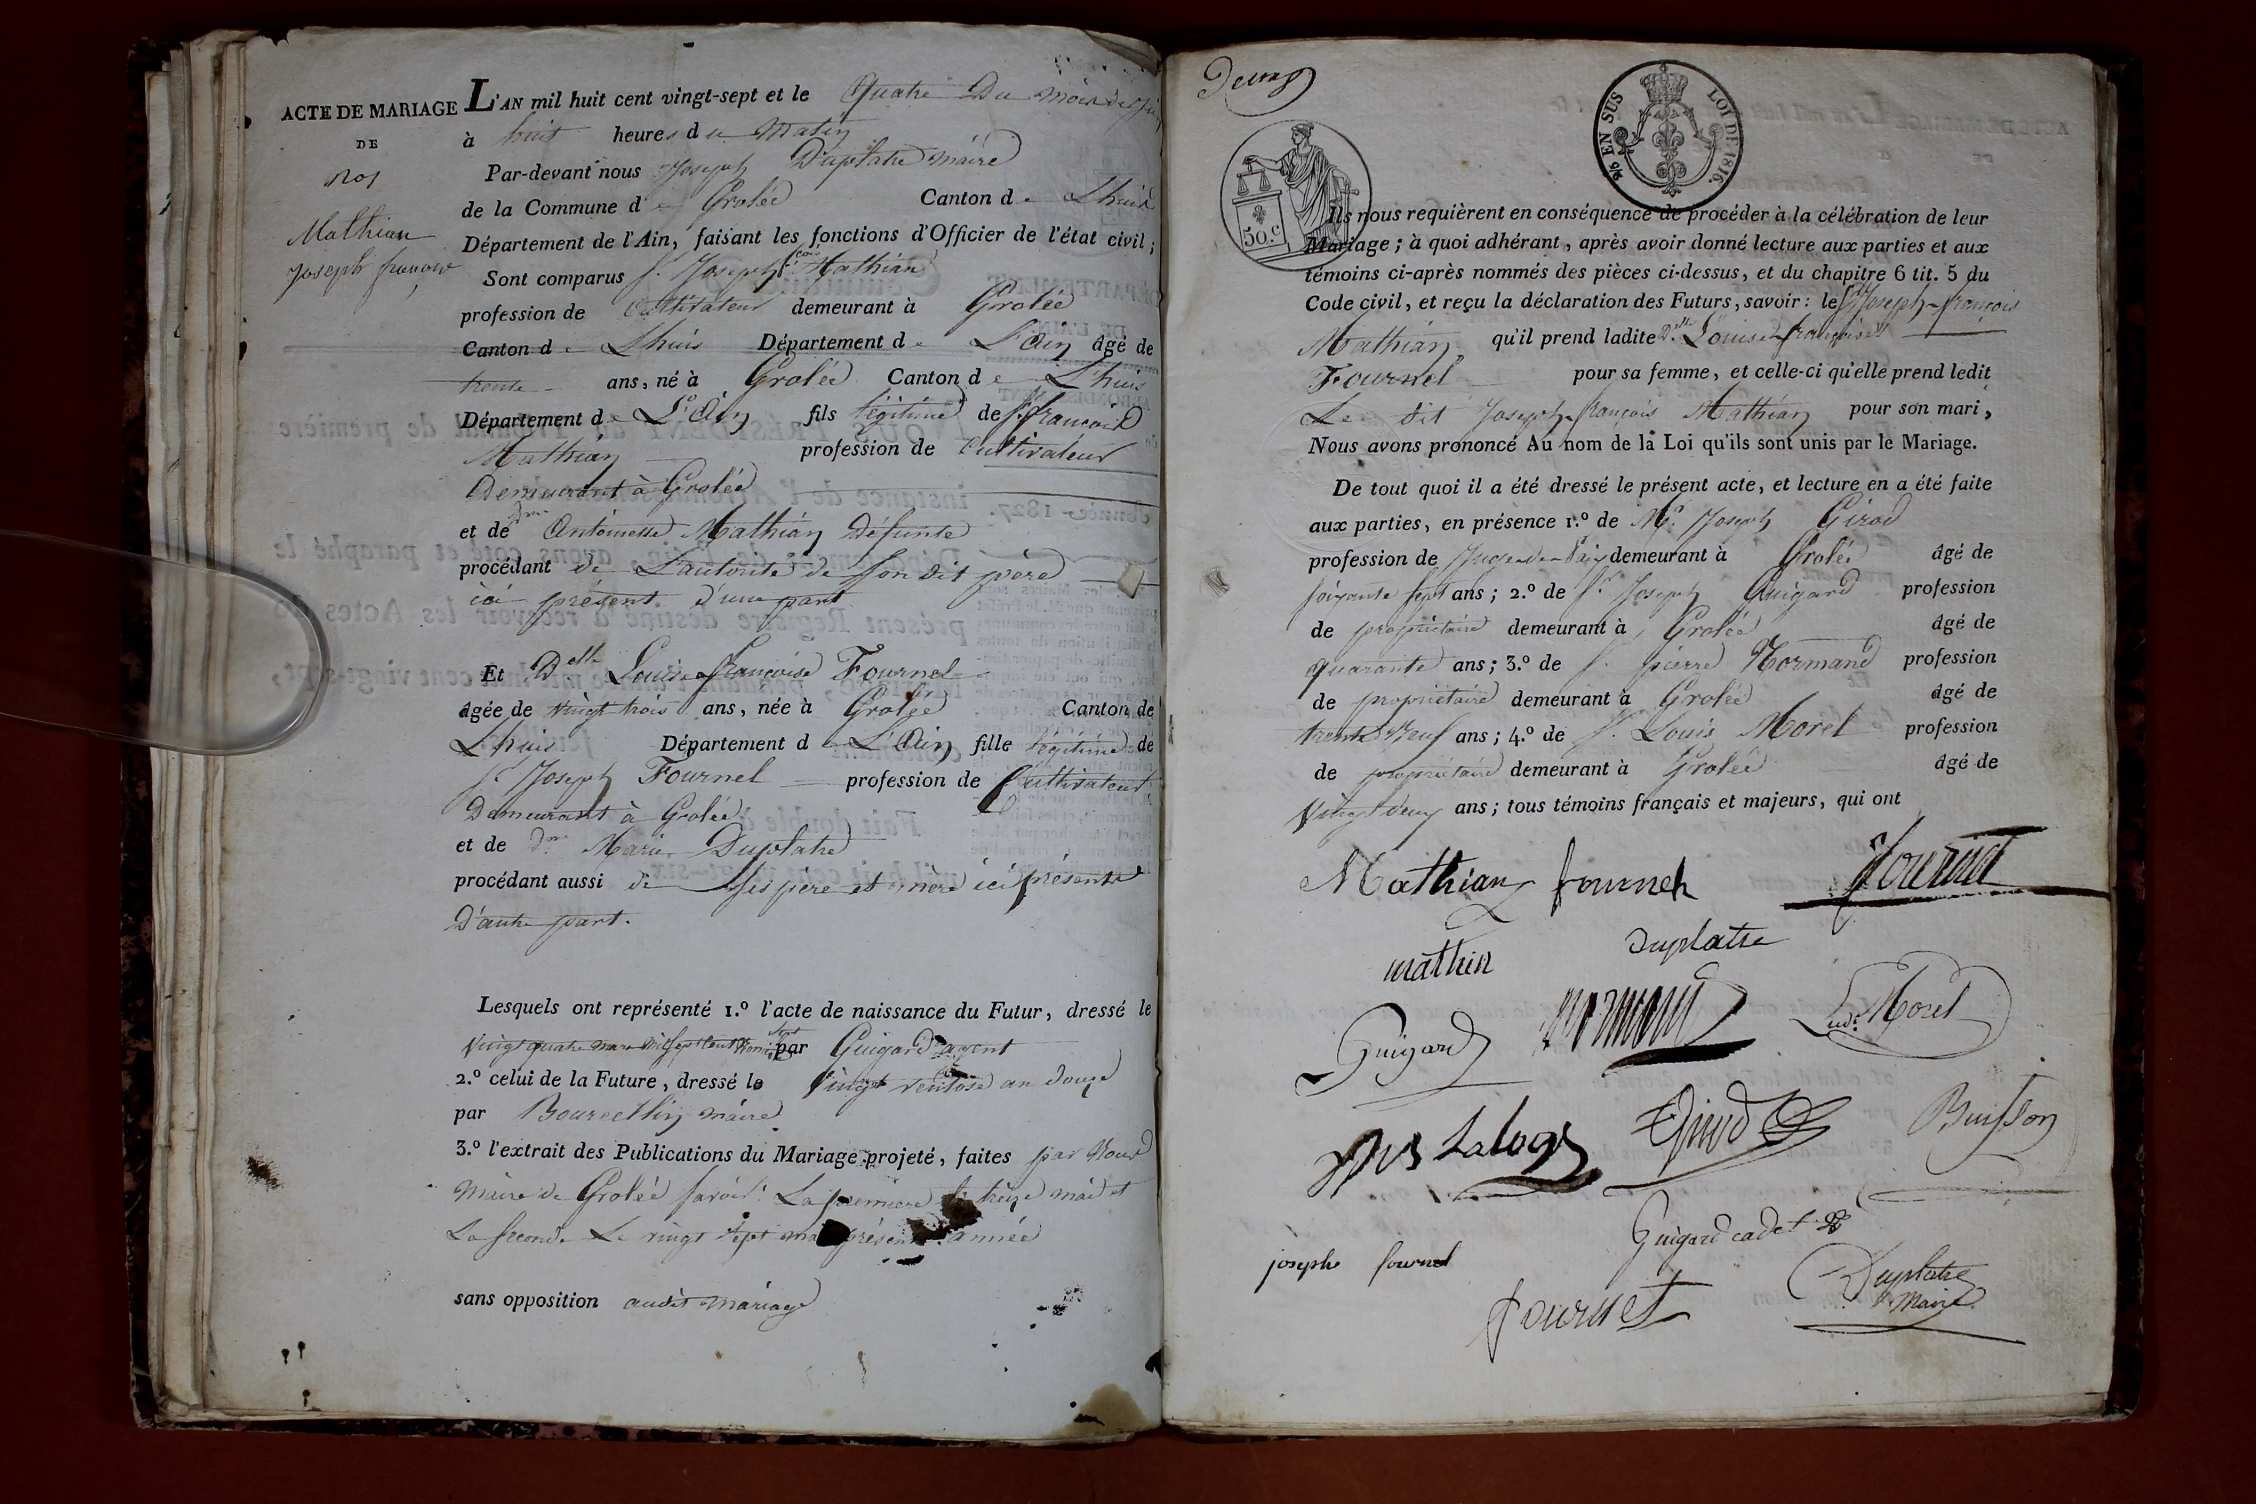 ACTE DE MARIAGE
DE
N.o 1
Mathian
Joseph françois
L'AN mil huit cent vingt-sept et le Quatre Du mois de juin
à huit heures du Matin
Par-devant nous Joseph Duplatre maire
de la Commune de Grolée Canton de Lhuis
Département de l'Ain, faisant les fonctions d'Officier de l'état civil;
Sont comparus S.r Joseph f.cois Mathian
profession de Cultivateur demeurant à Grolée
Canton de Lhuis Département de L'Ain âgé de
trente ans, né à Grolée Canton de Lhuis
Département de L'Ain fils légitime de S.r françois
Mathian profession de Cultivateur
Demeurant à Grolée
et de d.me Antoinette Mathian Défunte
procédant de L'autorité de Son dit père
ici présent d'une part
Et D.elle Louise françoise Fournel
âgée de vingt trois ans, née à Grolée Canton de
Lhuis Département de L'Ain fille légitime de
S.r Joseph Fournel profession de Cultivateur
Demeurant à Grolée
et de d.me Marie Duplatre
procédant aussi de Ses père et mère ici présents
D'autre part.
Lesquels ont représenté 1.º l'acte de naissance du Futur, dressé le
Vingt quatre mars mil sept cent par Guigard agent
2.º celui de la Future, dressé le Vingt ventose an douze
par maire
3.º l'extrait des Publications du Mariage projeté, faites par Nous
Maire de Grolée Savoir: La première le treize mai et
La Seconde Le vingt Sept mai présente année
sans opposition audit mariage
EN SUS
LOI DE 1816.
50.c
Ils nous requièrent en conséquence de procéder à la célébration de leur
Mariage; à quoi adhérant, après avoir donné lecture aux parties et aux
témoins ci-après nommés des pièces ci-dessus, et du chapitre 6 tit. 5 du
Code civil, et reçu la déclaration des Futurs, savoir: le S.r Joseph-françois
Mathian qu'il prend ladite D.elle Louise françoise
Fournel pour sa femme, et celle-ci qu'elle prend ledit
Le dit Joseph-françois Mathian pour son mari,
Nous avons prononcé Au nom de la Loi qu'ils sont unis par le Mariage.
De tout quoi il a été dressé le présent acte, et lecture en a été faite
aux parties, en présence 1.º de M.r Joseph Girod
profession de Juge de Paix demeurant à Grolée âgé de
soixante sept ans; 2.º de S.r Joseph Guigard profession
de propriétaire demeurant à Grolée âgé de
quarante ans; 3.º de S.r pierre Normand profession
de propriétaire demeurant à Grolée âgé de
trente Neuf ans; 4.º de S.r Louis Morel profession
de propriétaire demeurant à Grolée âgé de
Vingt deux ans; tous témoins français et majeurs, qui ont
Mathian fournel
mathin duplatre
Guigard normand Lud. Morel
Girod Buisson
Guigard cadet
josephe fournel Duplatre
Maire